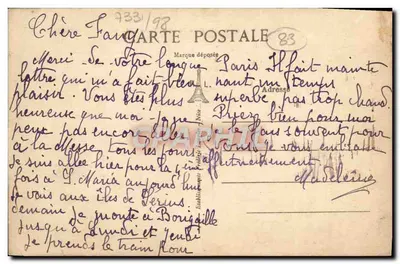 733/98
CARTE POSTALE
Marque déposée
83
Adresse
Chère Fany
Merci de votre longue
lettre qui m'a fait bien
plaisir. Vous êtes plus
heureuse que moi Je ne
peux pas encore aller
à la Messe tous les jours
je suis allée hier pour la
fois à S. Maria aujourd'hui
je vais aux îles de Lérins
demain je monte à
jusqu'à Lundi et Jeudi
Je prends le train pour
Paris Il fait mainte
nant un temps
superbe pas trop chaud
Priez bien pour moi
je le fais souvent pour
vous je vous embrasse
affectueusement
Madeleine